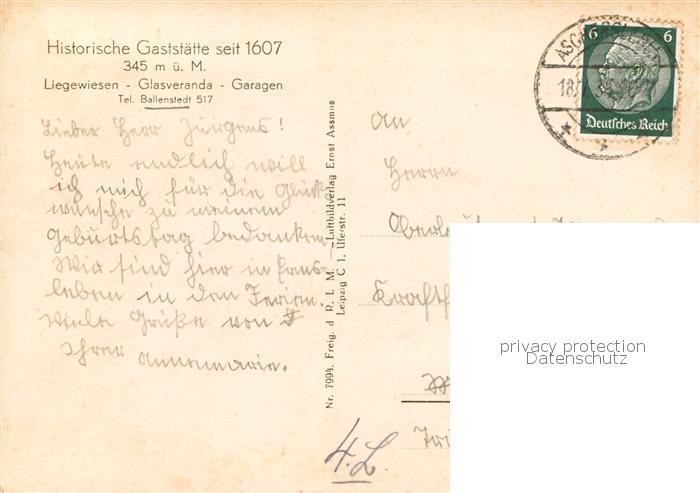 Historische Gaststätte seit 1607
345 m ü. M.
Liegewiesen - Glasveranda - Garagen
Tel. Ballenstedt 517
Lieber Herr Jürgens!
Heute endlich will
ich mich für die Glück-
wünsche zu meinem
Geburtstag bedanken.
Wir sind hier in Erms-
leben in den Ferien.
Viele Grüße von
Ihrer Annemarie.
Nr. 7994. Freig. d. R. L. M. — Luftbildverlag Ernst Assmus
Leipzig C 1, Uferstr. 11
An
Herrn
4.L.
6 6
Deutsches Reich
privacy protection
Datenschutz